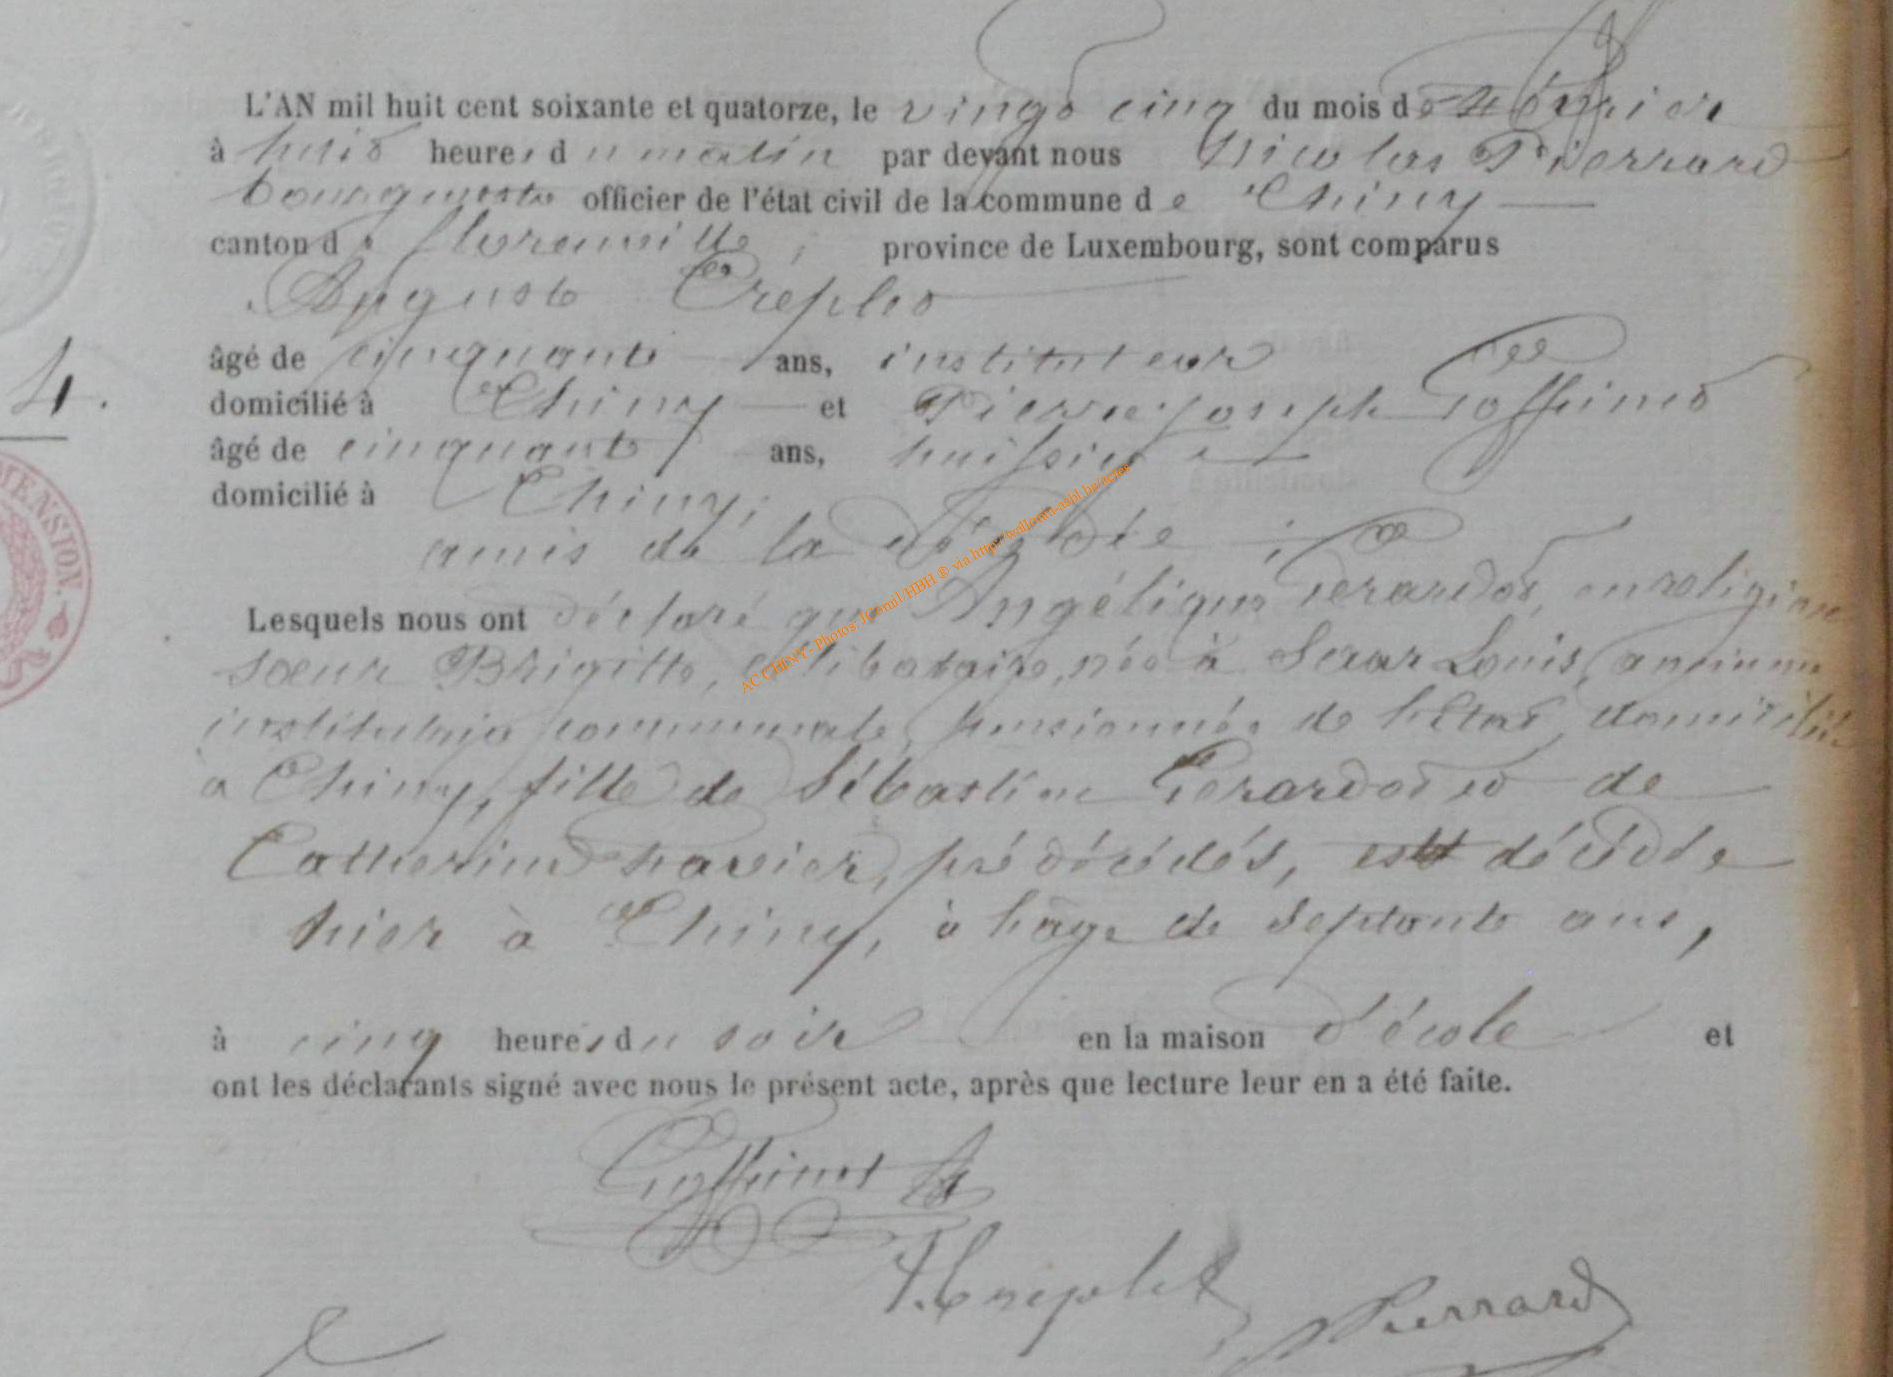 L'AN mil huit cent soixante et quatorze, le vingt cinq du mois de février
à huit heures du matin par devant nous Nicolas Pierrard
bourgmestre officier de l'état civil de la commune de Chiny
canton de florenville, province de Luxembourg, sont comparus
Auguste Créplet
âgé de cinquante ans, instituteur
4.
domicilié à Chiny et Pierre Joseph Goffinet
âgé de cinquante ans, huissier
domicilié à Chiny;
amis de la décédée;
Lesquels nous ont déclaré que Angélique Gerardot, en religion
sœur Brigitte, célibataire, née à Saar Louis, ancienne
institutrice communale, pensionnée de l'état, domiciliée
à Chiny, fille de Sébastien Gerardot et de
Catherine, prédécédés, est décédée
hier à Chiny, à l'âge de septante ans,
à cinq heures du soir en la maison d'école et
ont les déclarants signé avec nous le présent acte, après que lecture leur en a été faite.
Goffinet
Créplet
Pierrard
MENSION.
AC CHINY- Photos JComil/HBH ® via http://wallonia-asbl.be/actes